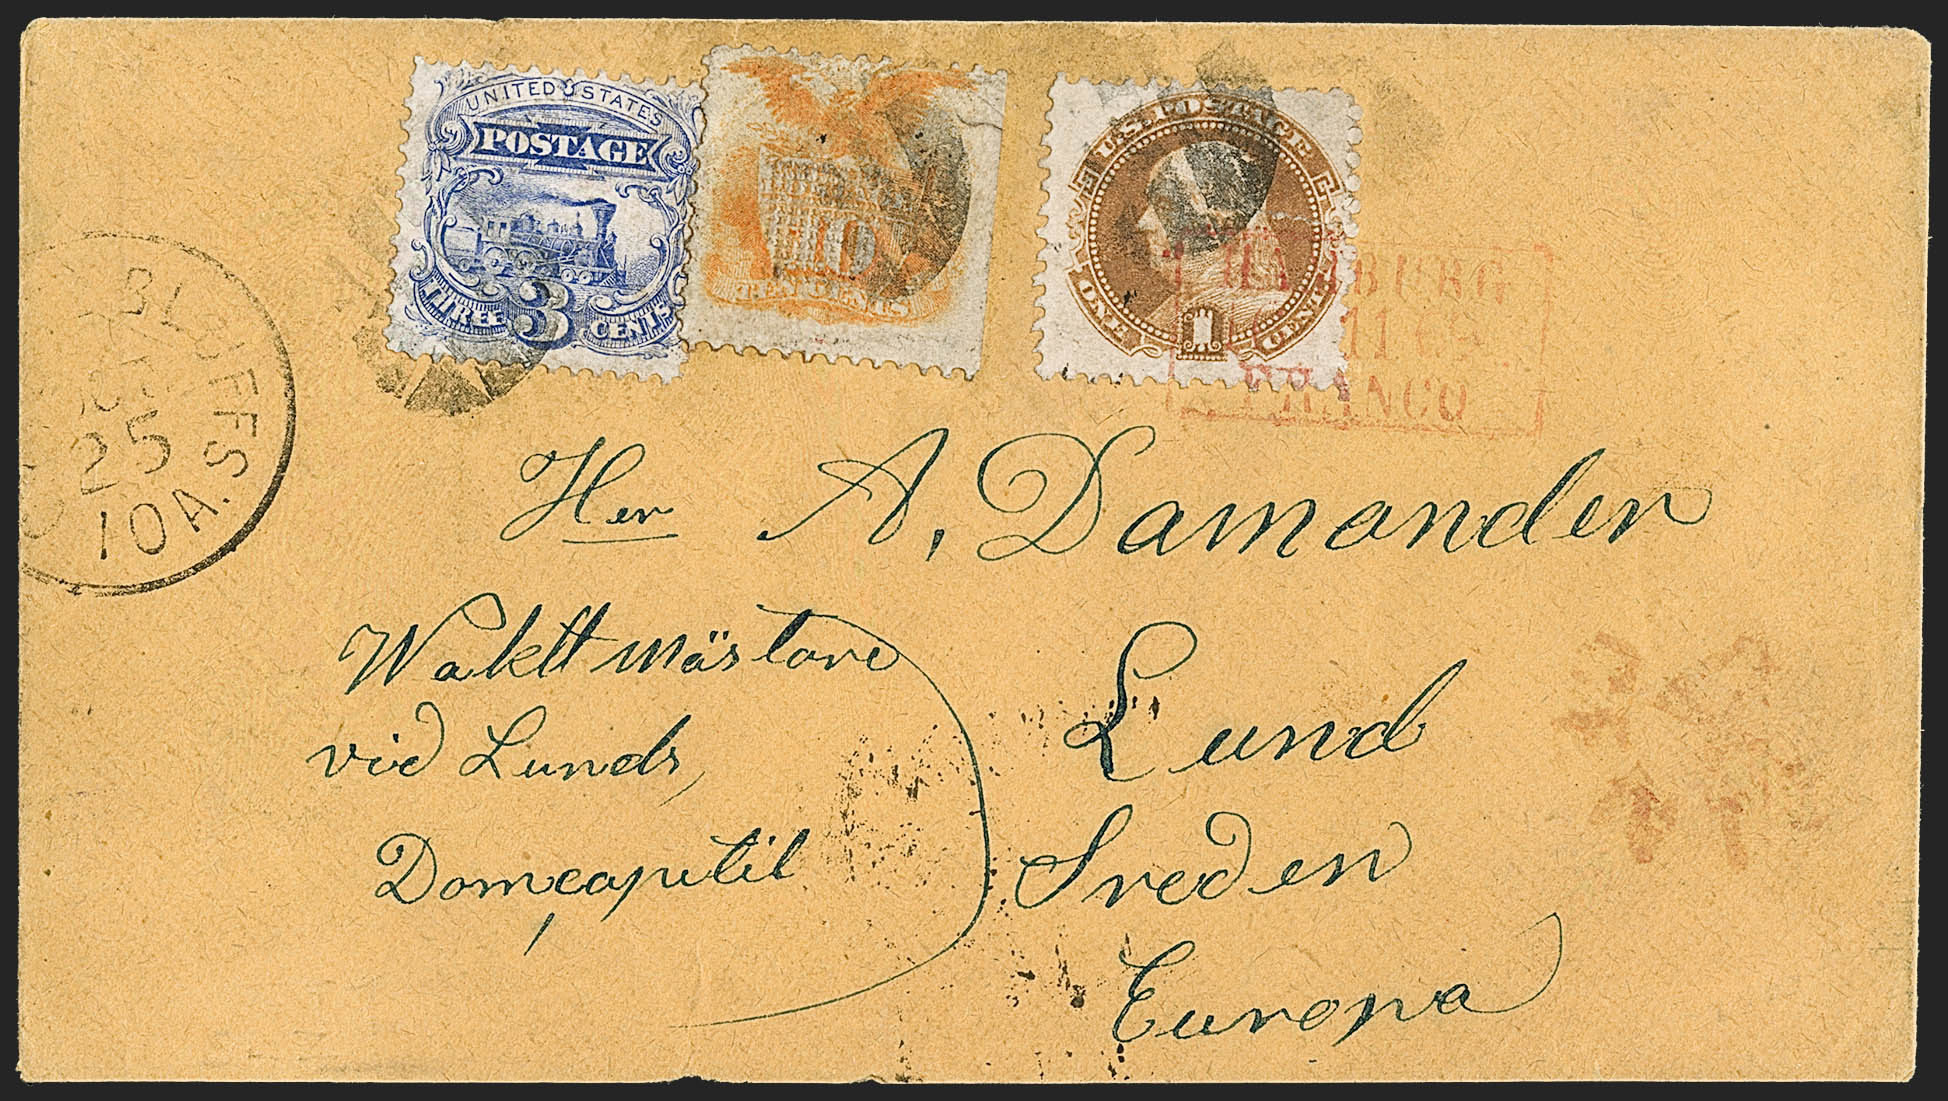 UNITED STATES
POSTAGE
THREE 3 CENTS
10
TEN CENTS
U.S. POSTAGE
ONE 1 CENT
BLUFFS
OCT
25
IOA.
HAMBURG
11 69
FRANCO
Her A, Damander
Waktt mästare
vid Lunds,
Domcapitil
Lund
Sveden
Europa